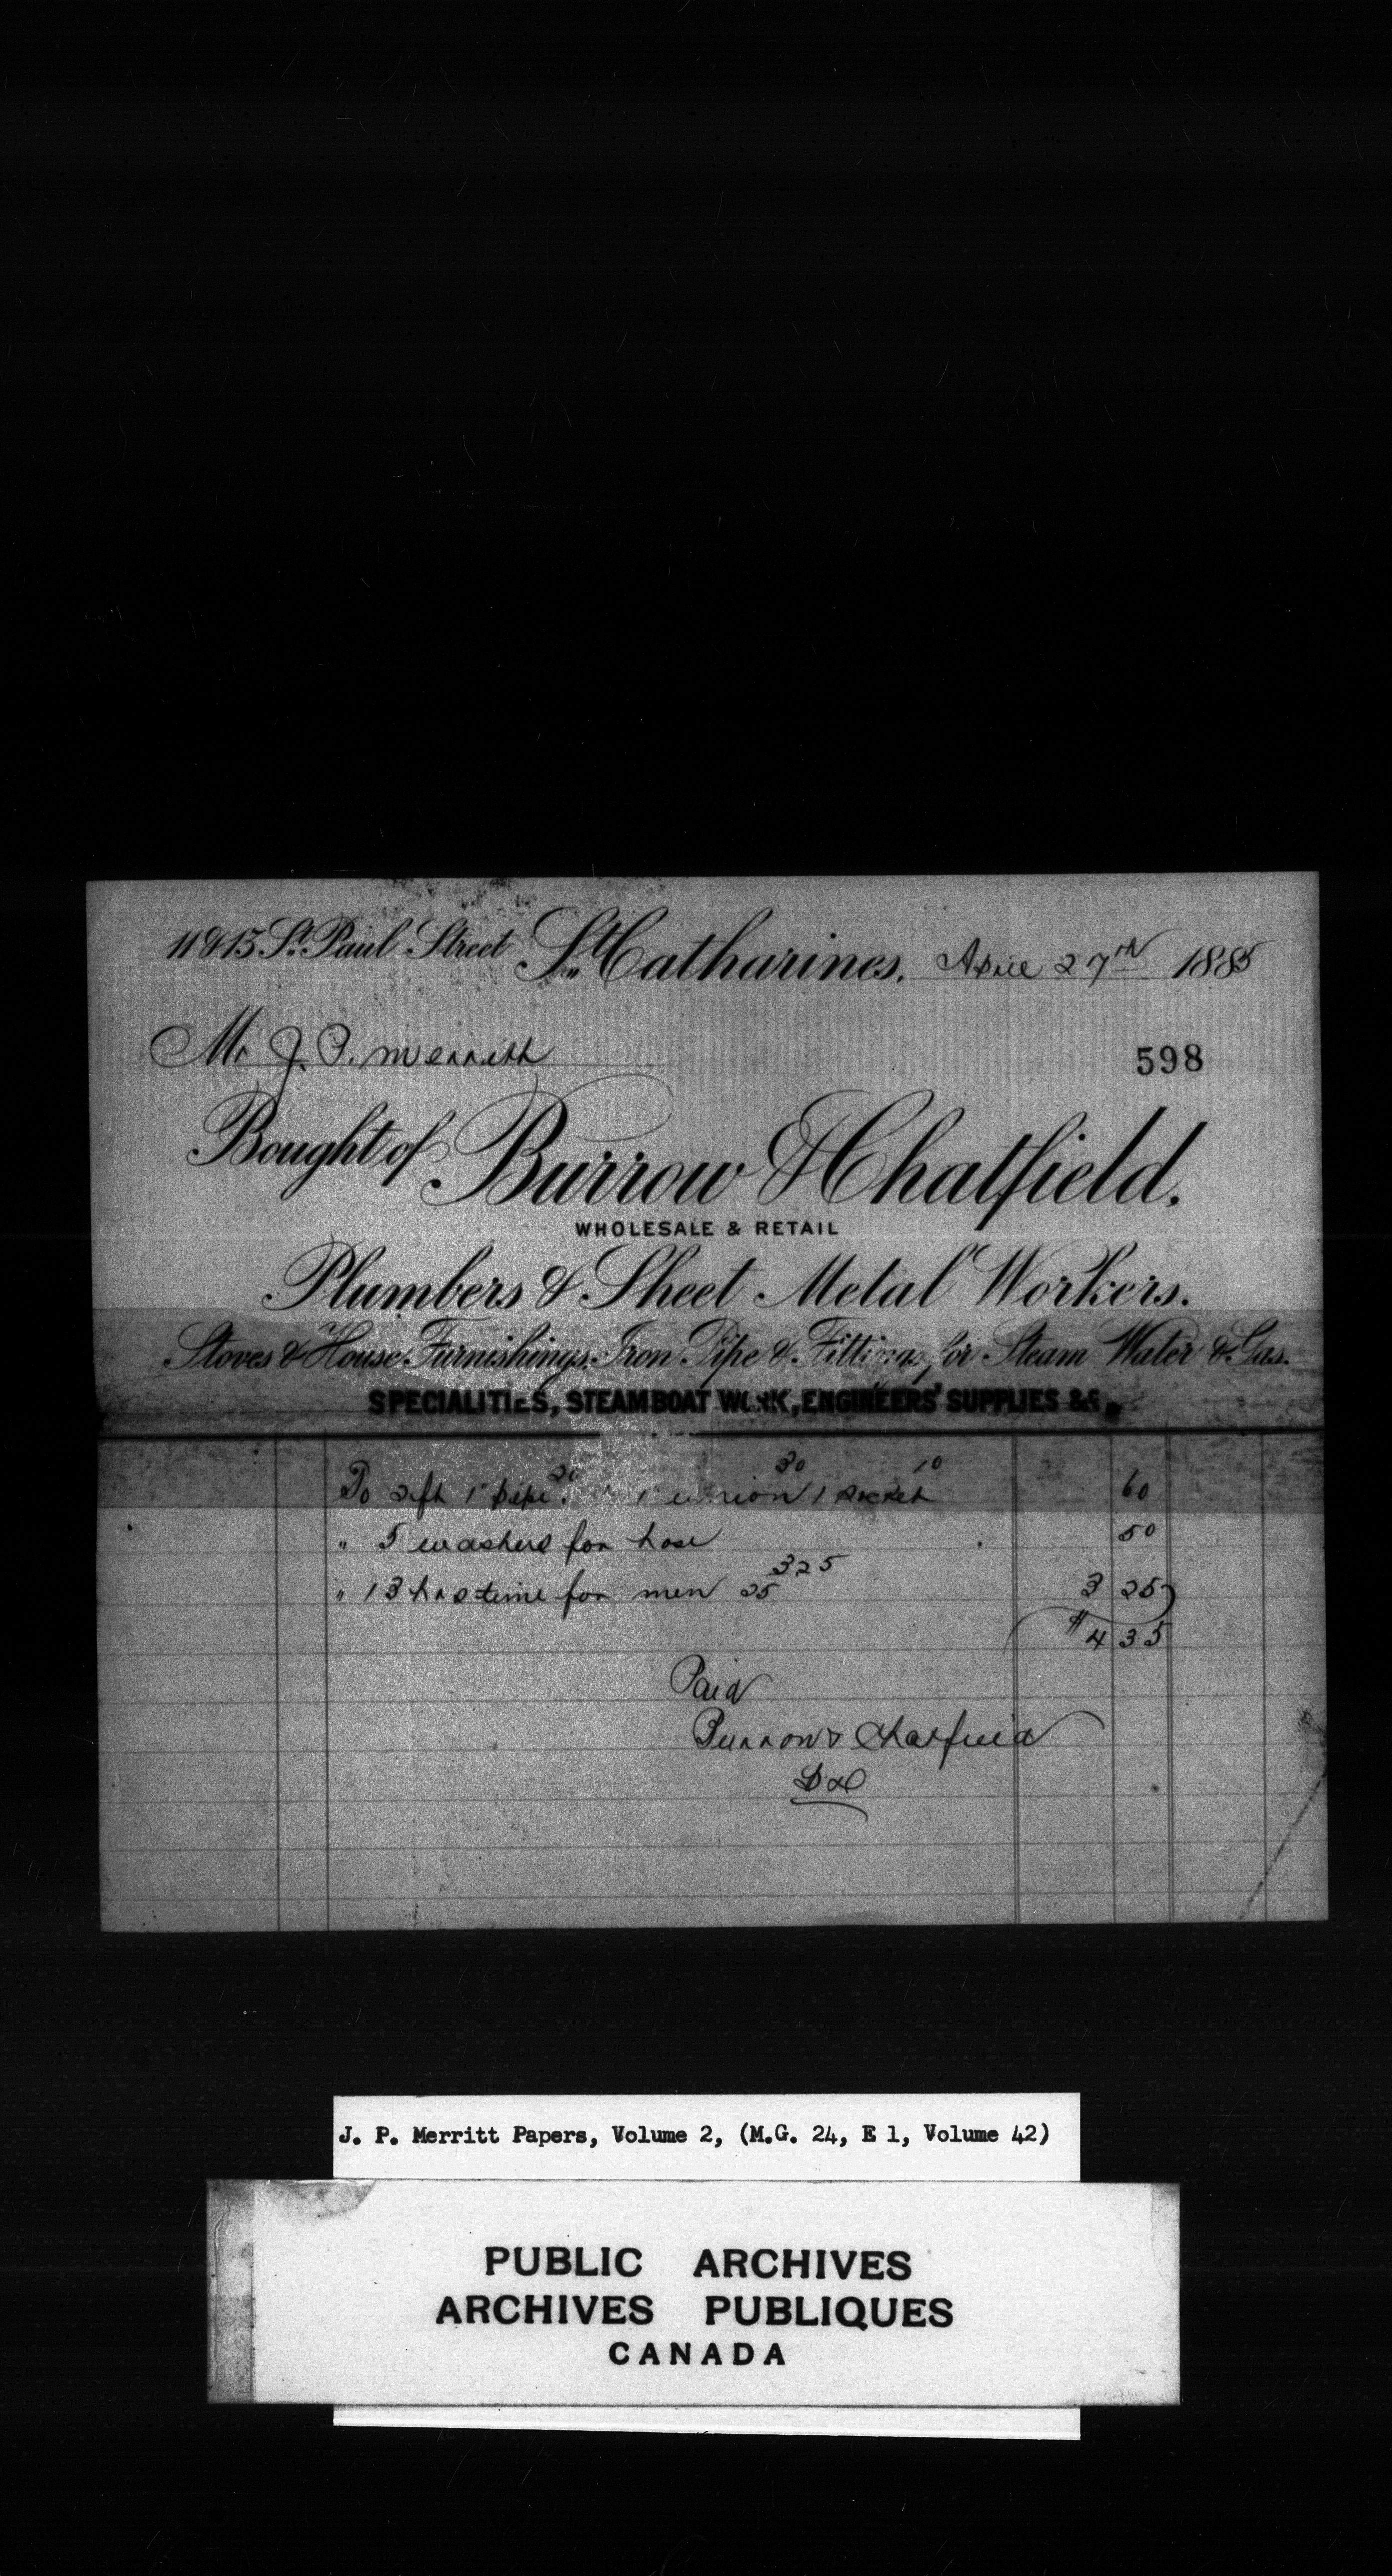 11 & 13 St. Paul Street St. Catharines, April 27th 1885
Mr J. P. Merritt
598
Bought of Burrow & Chatfield,
WHOLESALE & RETAIL
Plumbers & Sheet Metal Workers.
Stoves & House Furnishings, Iron Pipe & Fittings, for Steam Water & Gas.
SPECIALITIES, STEAMBOAT WORK, ENGINEERS' SUPPLIES &c.
20 30 10
To 2 ft 1" pipe. 1" union 1 socket 60
" 5 washers for hose 50
325
" 13 hrs time for men 25 3 25
$4 35
Paid
Burrow & Chatfield
J. P. Merritt Papers, Volume 2, (M.G. 24, E 1, Volume 42)
PUBLIC ARCHIVES
ARCHIVES PUBLIQUES
CANADA